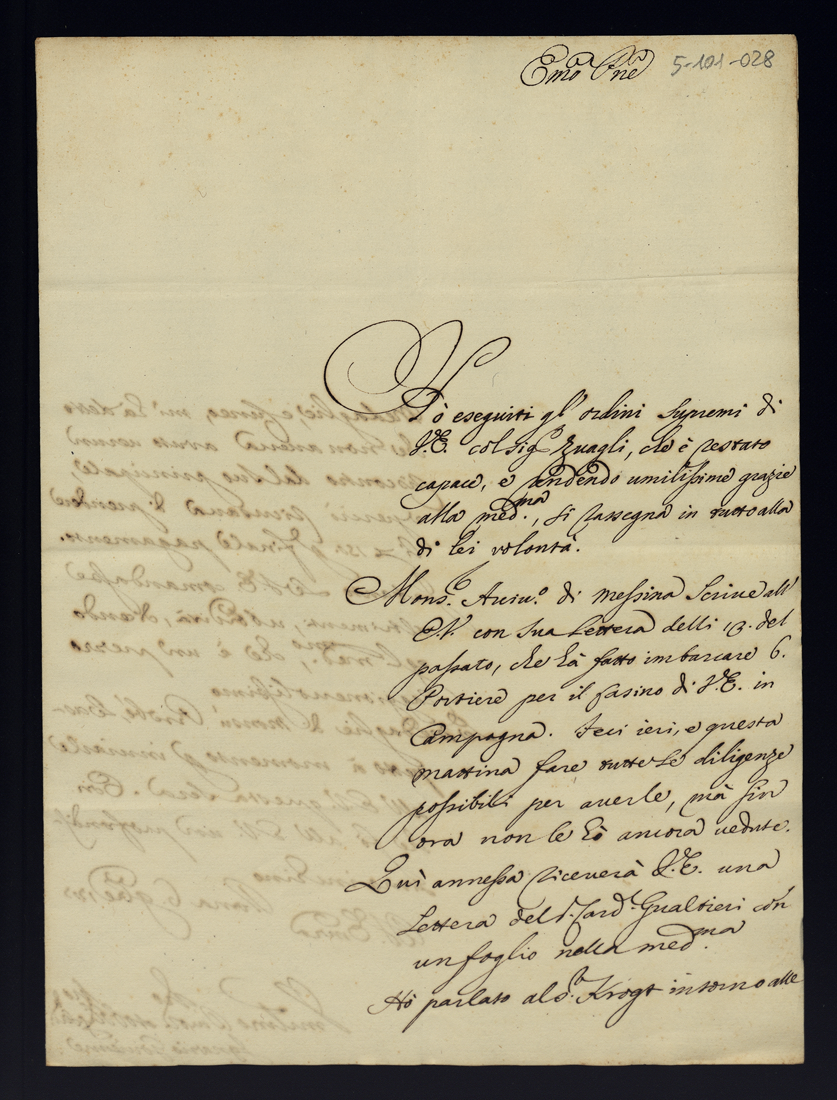 Emo Pne
5-101-028
Hò eseguiti gl'ordini supremi di
V.E. col sigr Zuagli, che è restato
capace, e rendendo umilissime grazie
alla medma, si rassegna in tutto alla
di lei volontà.
Mons. Arciuo. di Messina scriue all'
E.V. con sua lettera delli 13. del
passato, che hà fatto imbarcare 6.
Portiere per il casino di V.E. in
Campagna. Feci ieri, e questa
mattina fare tutte le diligenze
possibili per auerle, mà sin
ora non le hò ancora uedute.
Qui annessa riceuerà V.E. una
lettera del S. Card. Gualtieri con
un foglio nella medma.
Hò parlato al Sr Krogt intorno alle